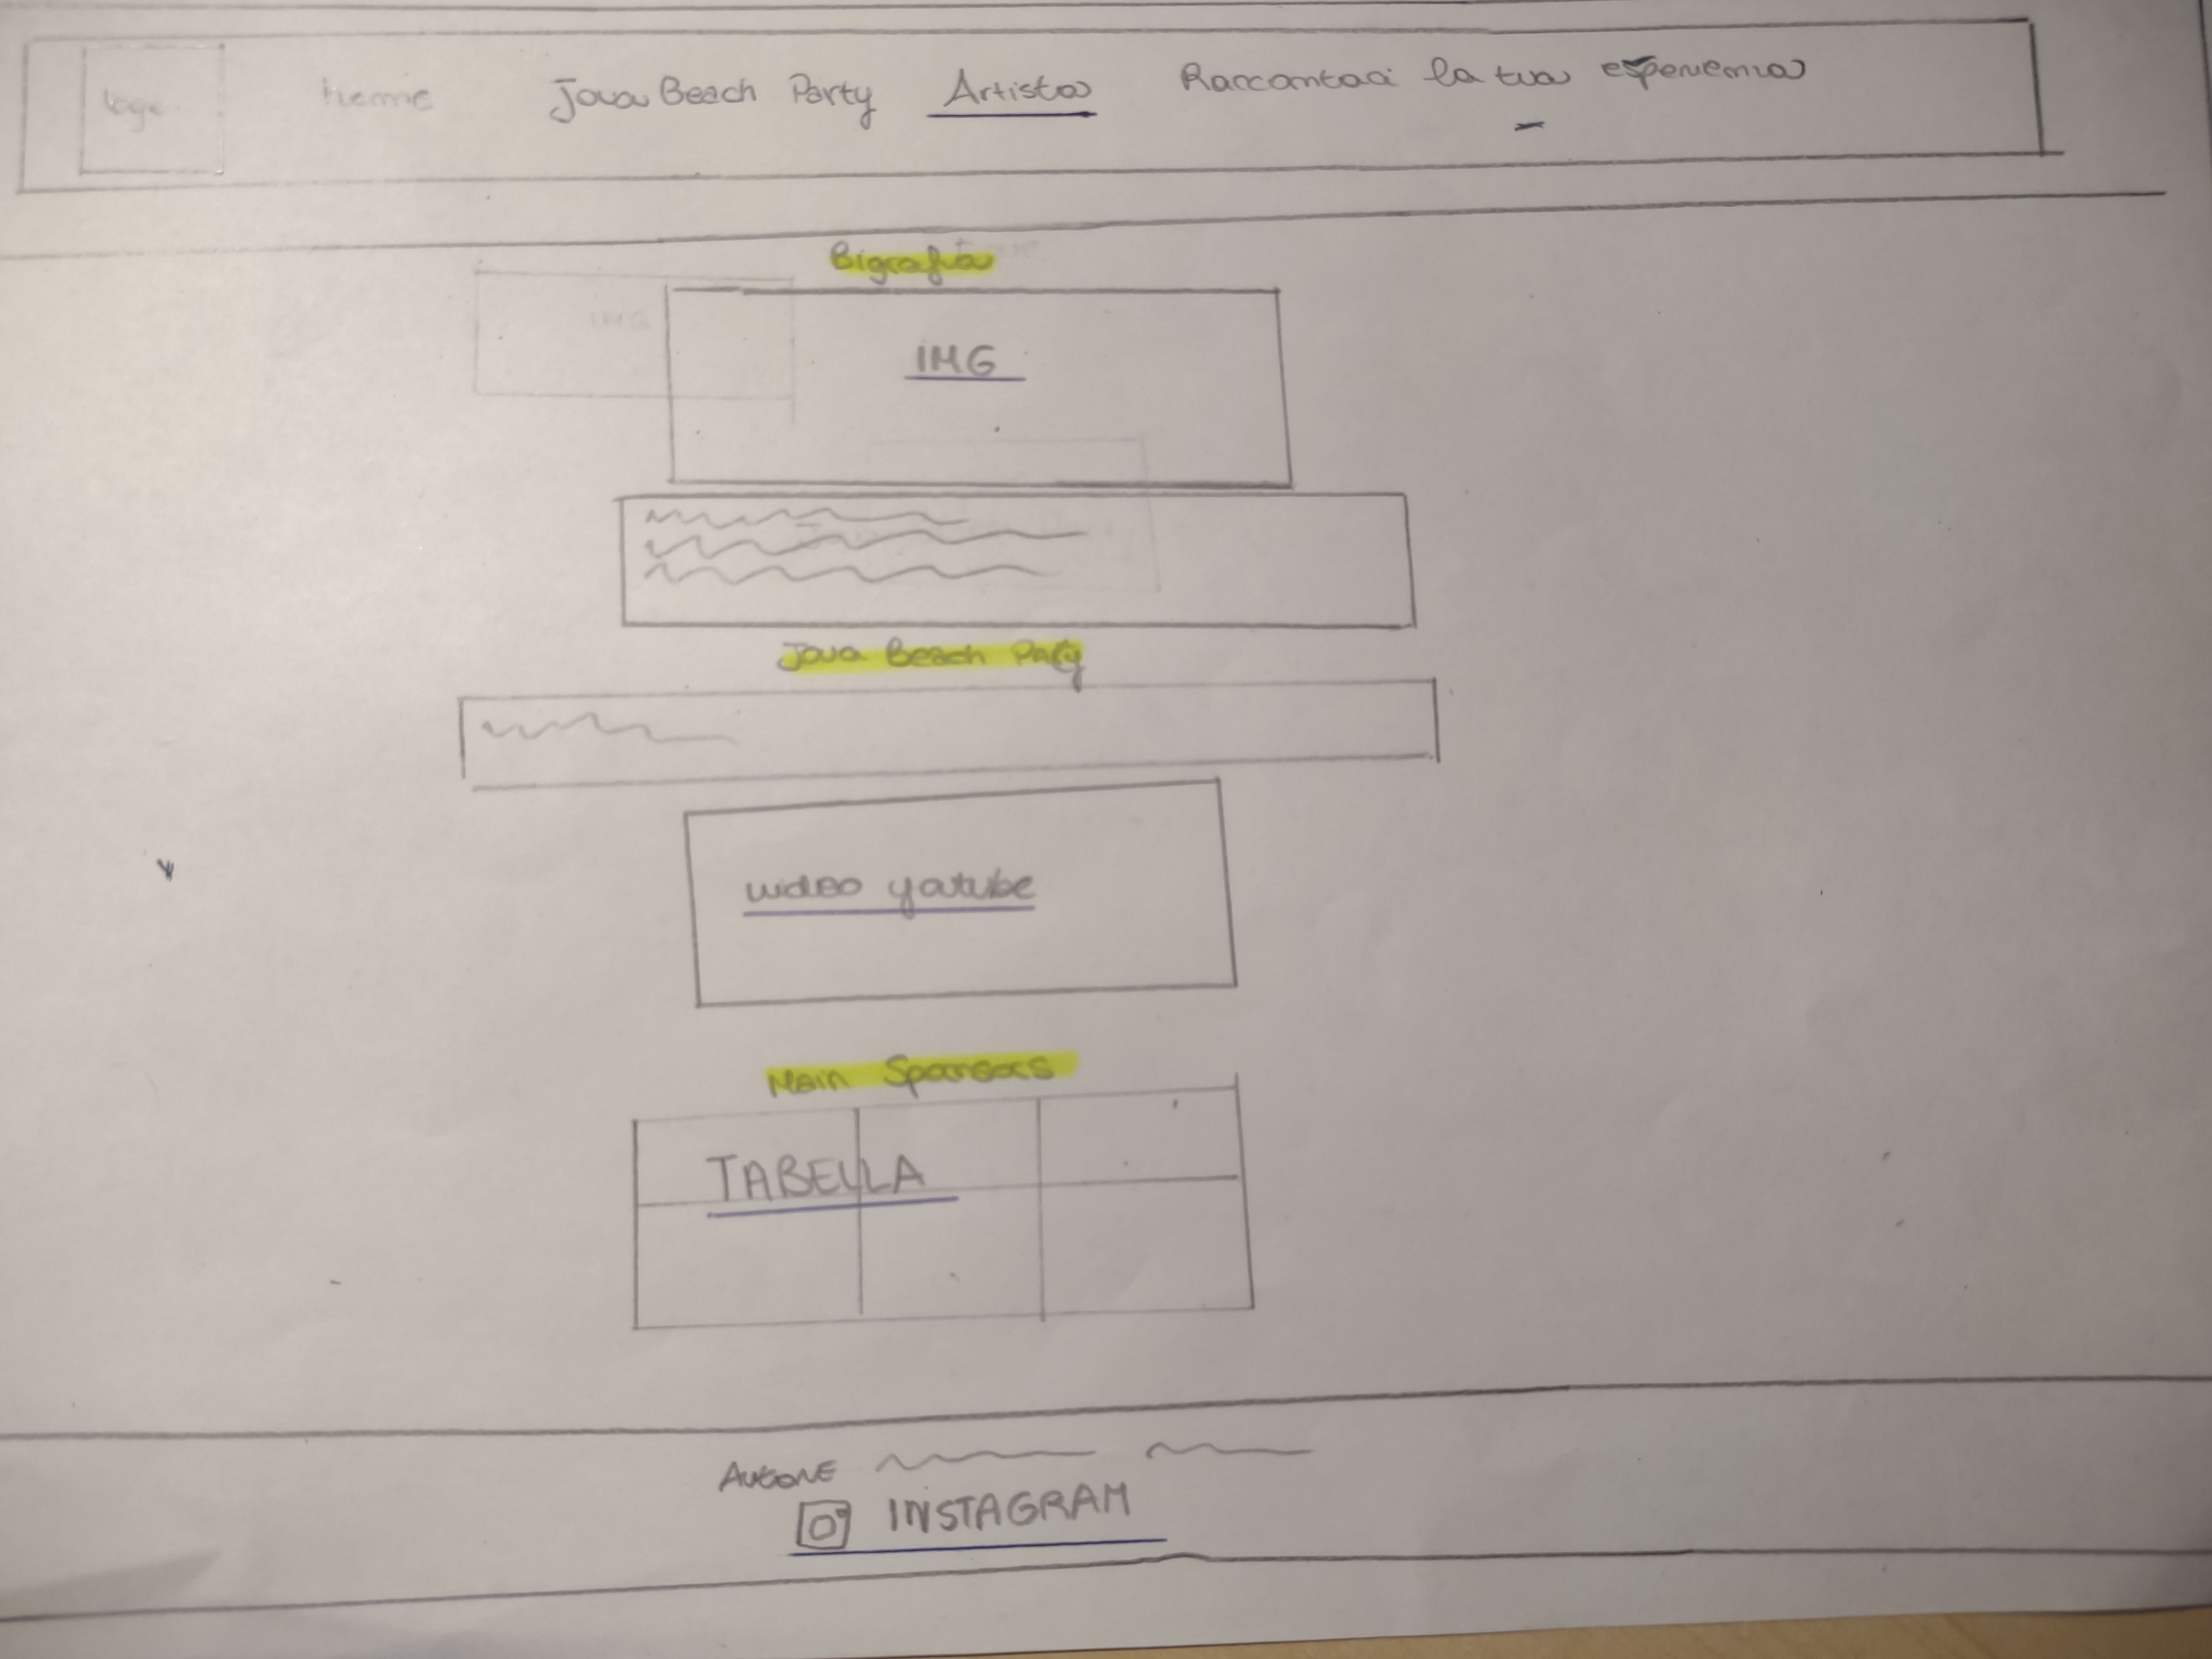 logo home Jova Beach Party Artista Raccontaci la tua esperienza
Bigrafia
IMG
IMG
Jova Beach Party
video youtube
Main Sponsors
TABELLA
AUTORE
INSTAGRAM